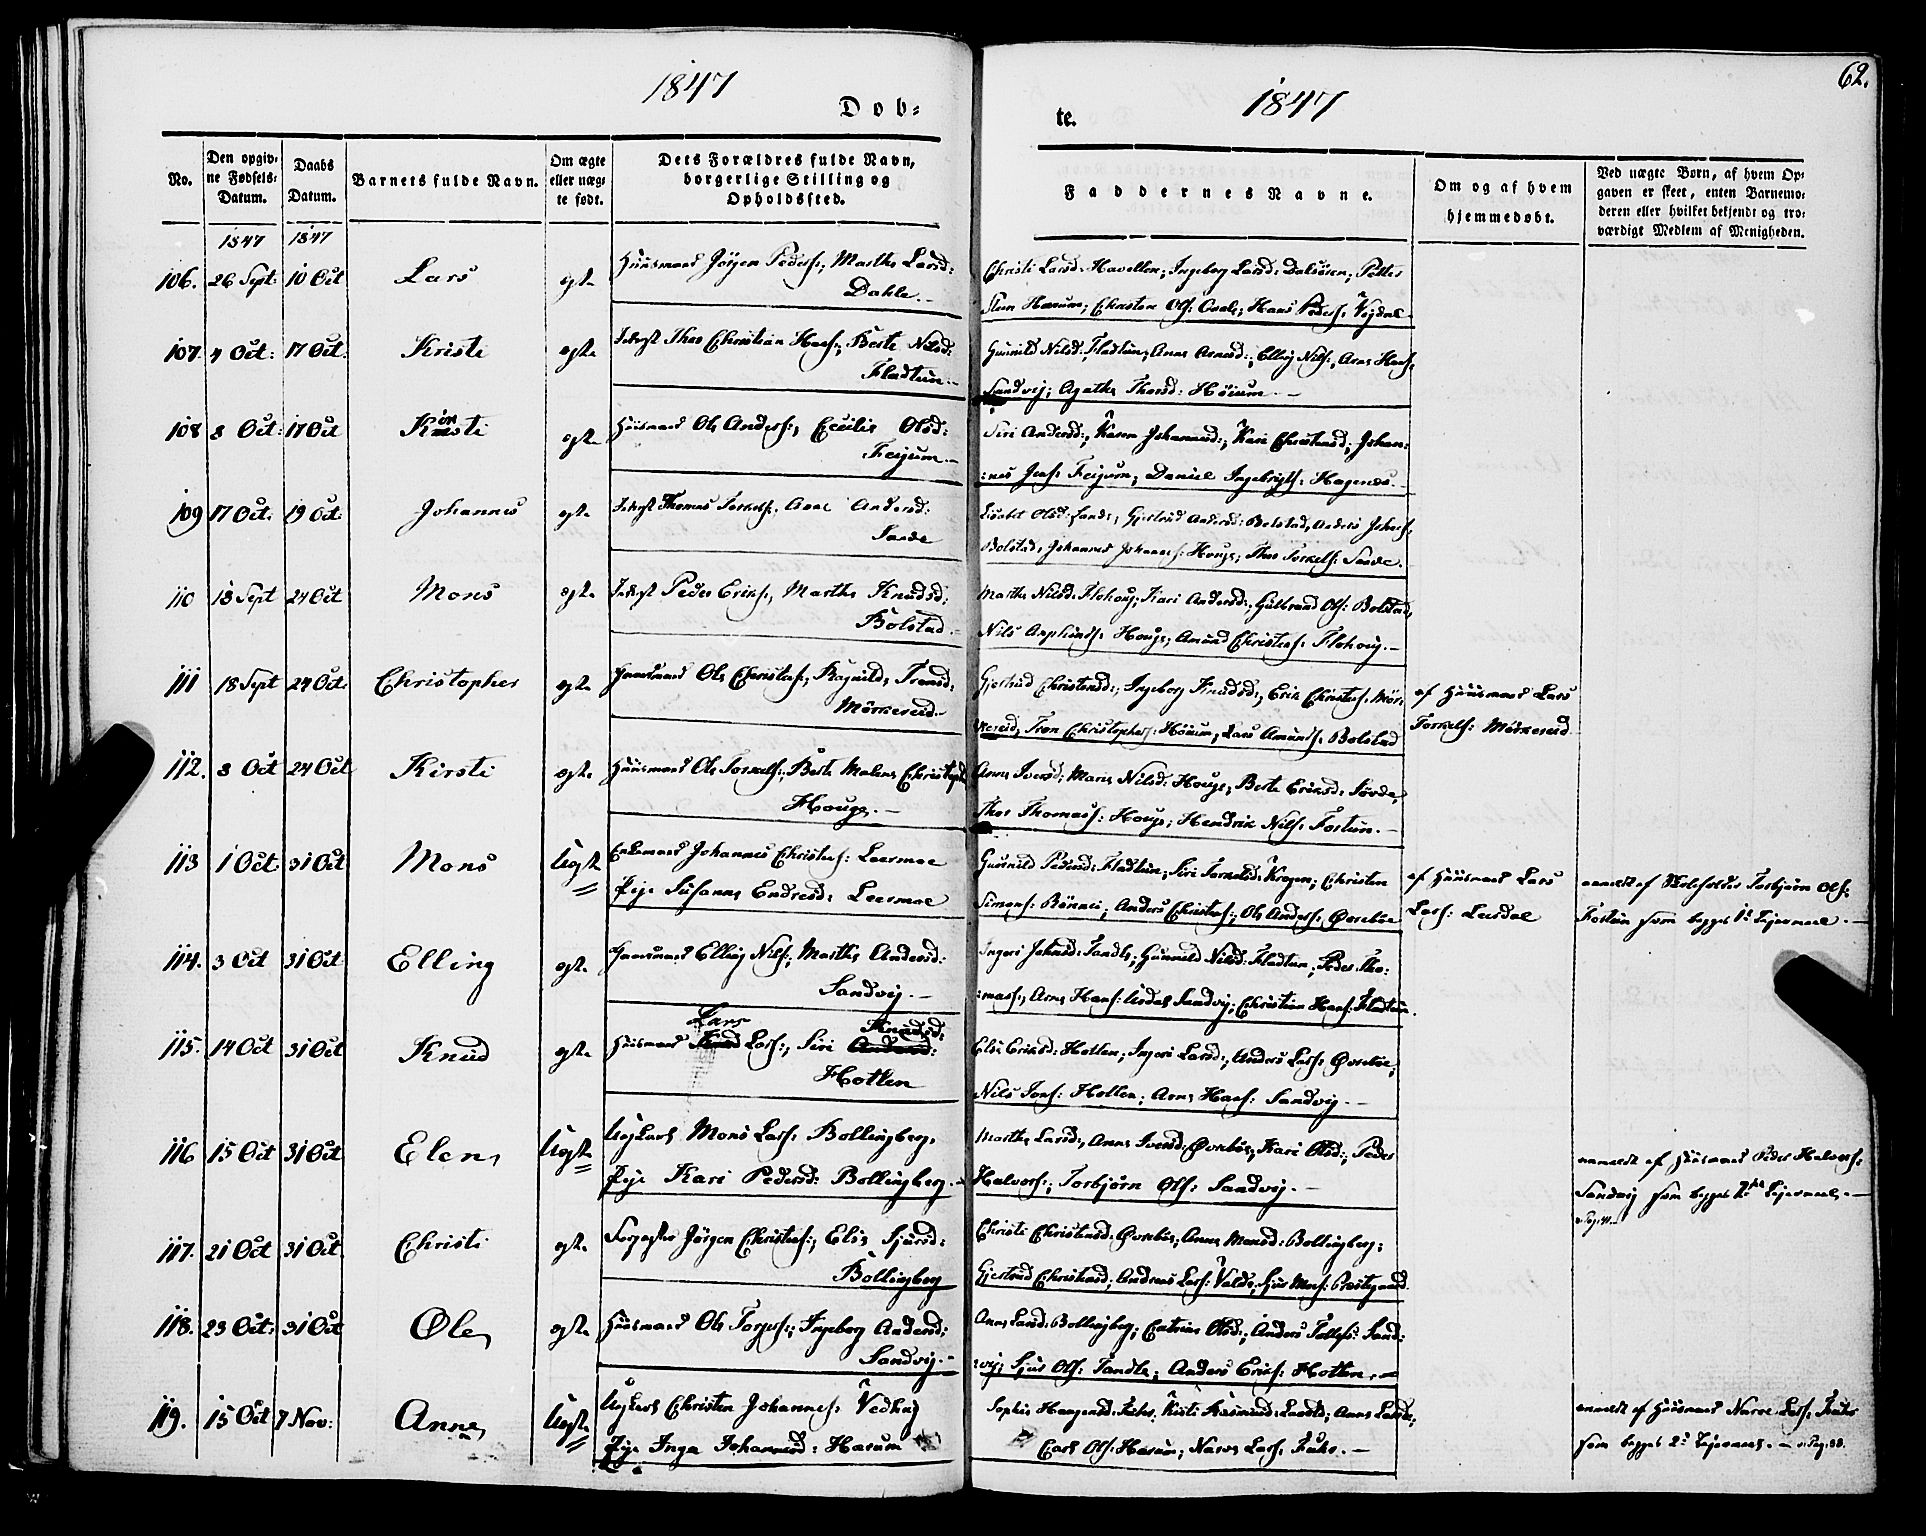 1847
Døb-
te.
1847
62.
No.
Den opgiv-
ne Fødsels-
Datum.
Daabs
Datum.
Barnets fulde Navn.
Om ægte
eller uæg-
te født.
Dets Forældres fulde Navn,
borgerlige Stilling og
Opholdssted.
Faddernes Navne.
Om og af hvem
hjemmedøbt.
Ved uægte Børn, af hvem Op-
gaven er skeet, enten Barnemo-
deren eller hvilket bekjendt og tro-
værdigt Medlem af Menigheden.
1847 1847
106. 26 Sept: 10 Oct Lars egte Huusmand Jörgen Peders:, Marthe Larsd:
Dahle.-
Christi Larsd: Ingeborg Larsd: Petter
Harum; Christen Ols: Hans Peders:
107. 4 Oct: 17 Oct Kristi egte Thor Christian Hans:, Berte Nilsd:
Fladtun.-
Gunnild Nilsd: Fladtun, Anna Arnesd:, Elling Nils:, Arne Hans:
Sandvij; Agathe Thorsd: Höium.-
108 8 Oct: 17 Oct egte Huusmand Ole Anders:, Cecilie Olsd:
Feijum.-
Siri Andersd:, Karen Johannesd:, Kari Christensd:, Johan-
:nes Jens: Feijum, Daniel Ingebrigts: Hagenæs.-
109 17 Oct: 19 Oct: Johannes egte Thomas Torkels:, Anne Andersd:
Sande
Lisabet Olsd: Sande, Gjertrud Andersd: Bolstad, Anders Johans:
Bolstad, Johannes Johannes: Houge; Thor Torkels: Sande.
110 18 Sept 24 Oct Mons egte Peder Eriks:, Marthe Knudsd:
Bolstad.-
Marthe Nilsd: Flohoug; Kari Andersd:, Gulbrand Ols: Bolstad,
Nils Houge; Amund Christens: Flohoug.-
111 18 Sept 24 Oct: Christopher egte Huusmand Ole Christens:, Ragnild Tronsd:
Mörkereid.-
Gjertrud Christensd:, Ingeborg Knudsd:, Erik Christens: Mör-
kereid, Tron Christophers: Höium, Lars Amunds: Bolstad
af Huusmand Lars
Torkels: Mörkereid
112. 8 Oct 24 Oct Kirsti egte Huusmand Ole Torkels:, Berte Malene
Houge.-
Anna Iversd; Marie Nilsd: Houge, Berte Eriksd:
Thor Thomass: Houge; Hendrik Nils: Fortun.-
113 1 Oct: 31 Oct Mons Uegte Johannes Christens: Leermoe
Pige Susanne Endresd: Leermoe
Gunnild Pedersd: Fladtun; Siri Krogen; Christen
Simons: Rönnei; Anders Christens:; Ole Anders: Øvrebøe
af Huusmand Lars
Lars: Leirdal
anmeldt af Torbjörn Ols:
Fortun som begges 1ste Lejermaal.-
114. 3 Oct 31 Oct Elling egte Huusmand Elling Nils:, Marthe Andersd:
Sandvij.-
Ingeri Johnsd: Tandle; Gunnild Nilsd: Fladtun; Peder Tho-
:mass:, Arne Hans: Sandvij; Christian Hans: Fladtun.
115. 14 Oct 31 Oct Knud egte Huusmand Lars Lars:, Siri Knudsd:
Hotlen
Else Eriksd: Hotlen; Ingeri Larsd:, Anders Lars: Øvrebøe,
Nils Jons: Hotlen; Arne Hans: Sandvij.-
116 15 Oct 31 Oct Elen Uegte Ugkarl Mons Lars: Bollingberg,
Pige Kari Pedersd: Bollingberg.-
Marthe Larsd:, Anna Iversd: Øvrebøe, Kari Olsd:, Peder
Halvors:, Torbjörn Ols: Sandvij.-
anmeldt af Huusmand Peder Halvors:
Sandvij som begges 2det Lejermaal.-
117. 21 Oct 31 Oct Christi egte Jörgen Christens:, Elis Sjursd:
Bollingberg
Christi Christensd: Øvrebøe; Anna Monsd: Bollingberg;
Gjertrud Christensd; Andreas Lars: Valde, Sjur Mons: Prestegaard.
118. 23 Oct: 31 Oct Ole egte Huusmand Ole Torjus:; Ingeborg Andersd:
Sandvij.-
Anne Larsd: Bollingberg; Catrine Olsd:; Anders Tollefs: Sand-
:vij; Sjur Ols: Tandle; Anders Eriks: Hotlen.-
119. 15 Oct 7 Nov: Anne Uegte Ugkarl Christen Johannes: Vedhug
Pige Inga Johannesd: Harum
Sophie Haagensd: Fuhr, Kisti Anna
Carl Ols: Harum; Narve Lars: Fuhr.-
anmeldt af Huusmand Narve Lars: Fuhr
som begges 2det Lejermaal.-